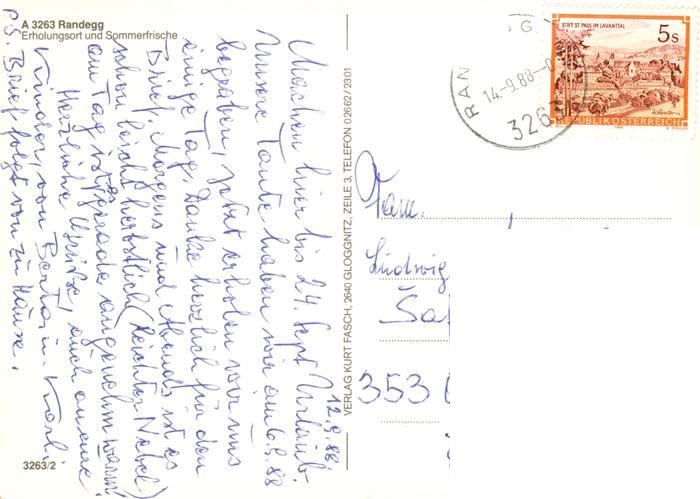 A 3263 Randegg
Erholungsort und Sommerfrische
12.9.88
Machen hier bis 24. Sept. Urlaub.
Unsere Tante haben wir am 6.9.88
begraben, jetzt erholen wir uns
einige Tag. Danke herzlich für den
Brief. Morgens und Abends ist es
schon leicht herbstlich (leichter Nebel)
am Tag ist es gerade angenehm warm.
Herzliche Grüße, auch an eure
Kinder, von Berta u. Karl.
P.S. Brief folgt von zu Hause.
3263/2
VERLAG KURT FASCH, 2640 GLOGGNITZ, ZEILE 3, TELEFON 02662/2301
STIFT ST. PAUL IM LAVANTTAL
5s
REPUBLIK ÖSTERREICH
RAN
G
14.-9.88-
326
Fam.
Ludwig
353